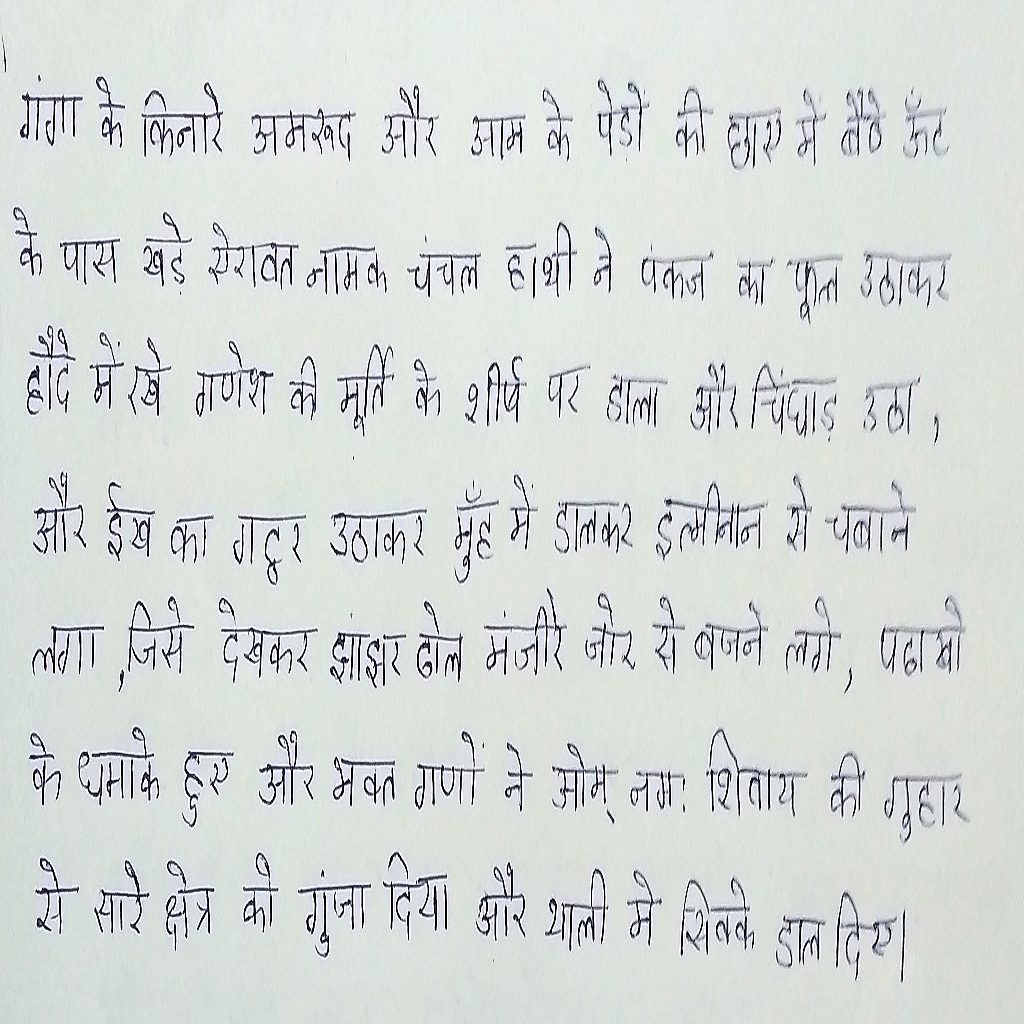 गंगा के किनारे अमरूद और आम के पेडों की छाए में बैठे ऊँट
के पास खड़े ऐरावत नामक चंचल हाथी ने पंकज का फूल उठाकर
हौदे में रखे गणेश की मूर्ति के शीर्ष पर डाला और चिंघाड़ उठा,
और ईख का गट्ठर उठाकर मुँह में डालकर इत्मीनान से चबाने
लगा, जिसे देखकर झांझर ढोल मंजीरे जोर से बजने लगे, पटाखो
के धमाके हुए और भक्त गणों ने ओम् नमः शिवाय की गुहार
से सारे क्षेत्र को गुंजा दिया और थाली मे सिक्के डाल दिए।